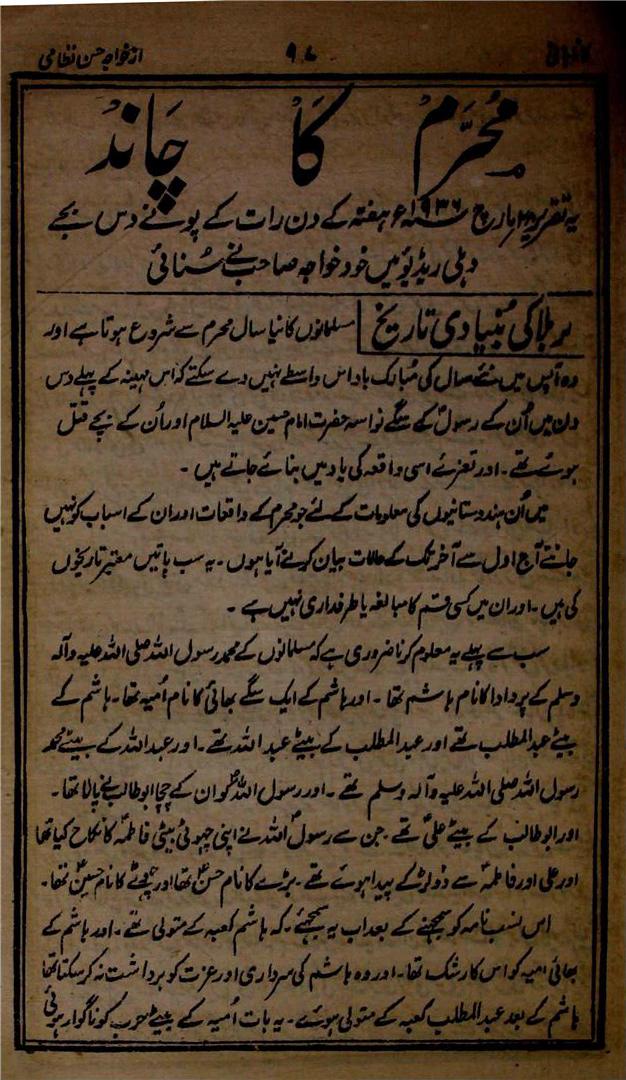 از خواجہ حسن نظامی
۹۷
محرم کا چاند
یہ تقریر ۲۸ مارچ ۱۹۳۶ء ہفتہ کے دن رات کے پونے دس بجے
دہلی ریڈیو میں خود خواجہ صاحب نے سُنائی
کربلا کی بُنیادی تاریخ
مسلمانوں کا نیا سال محرم سے شروع ہوتا ہے اور
وہ آپس میں نئے سال کی مُبارک باد اس واسطے نہیں دے سکتے کہ اس مہینہ کے پہلے دس
دن میں اُن کے رسولؐ کے سگے نواسہ حضرت امام حسین علیہ السلام اور اُن کے بچے قتل
ہوئے تھے۔ اور تعزئے اسی واقعہ کی یاد میں بنائے جاتے ہیں۔
میں اُن ہندوستانیوں کی معلومات کے لئے جو محرم کے واقعات اور ان کے اسباب کو نہیں
جانتے آج اول سے آخر تک کے حالات بیان کرنے آیا ہوں۔ یہ سب باتیں معتبر تاریخوں
کی ہیں۔ اور ان میں کسی قسم کا مبالغہ یا طرفداری نہیں ہے۔
سب سے پہلے یہ معلوم کرنا ضروری ہے کہ مسلمانوں کے محمد رسول اللہ صلی اللہ علیہ وآلہ
وسلم کے پردادا کا نام ہاشم تھا۔ اور ہاشم کے ایک سگے بھائی کا نام اُمیہ تھا۔ ہاشم کے
بیٹے عبدالمطلب تھے اور عبدالمطلب کے بیٹے عبداللہ تھے۔ اور عبداللہ کے بیٹے محمد
رسول اللہ صلی اللہ علیہ وآلہ وسلم تھے۔ اور رسول اللہؐ کو ان کے چچا ابوطالب نے پالا تھا۔
اور ابوطالب کے بیٹے علیؑ تھے۔ جن سے رسولؐ اللہ نے اپنی چھوٹی بیٹی فاطمہؑ کا نکاح کیا تھا
اور علی اور فاطمہؑ سے دو لڑکے پیدا ہوئے تھے۔ بڑے کا نام حسنؑ تھا اور چھوٹے کا نام حسینؑ تھا۔
اس نسب نامہ کو سمجھنے کے بعد اب یہ سمجھئے۔ کہ ہاشم کعبہ کے متولی تھے۔ اور ہاشم کے
بھائی امیہ کو اس کا رشک تھا۔ اور وہ ہاشم کی سرداری اور عزت کو برداشت نہ کر سکتا تھا
ہاشم کے بعد عبدالمطلب کعبہ کے متولی ہوئے۔ یہ بات اُمیہ کے بیٹے حرب کو ناگوار ہوئی